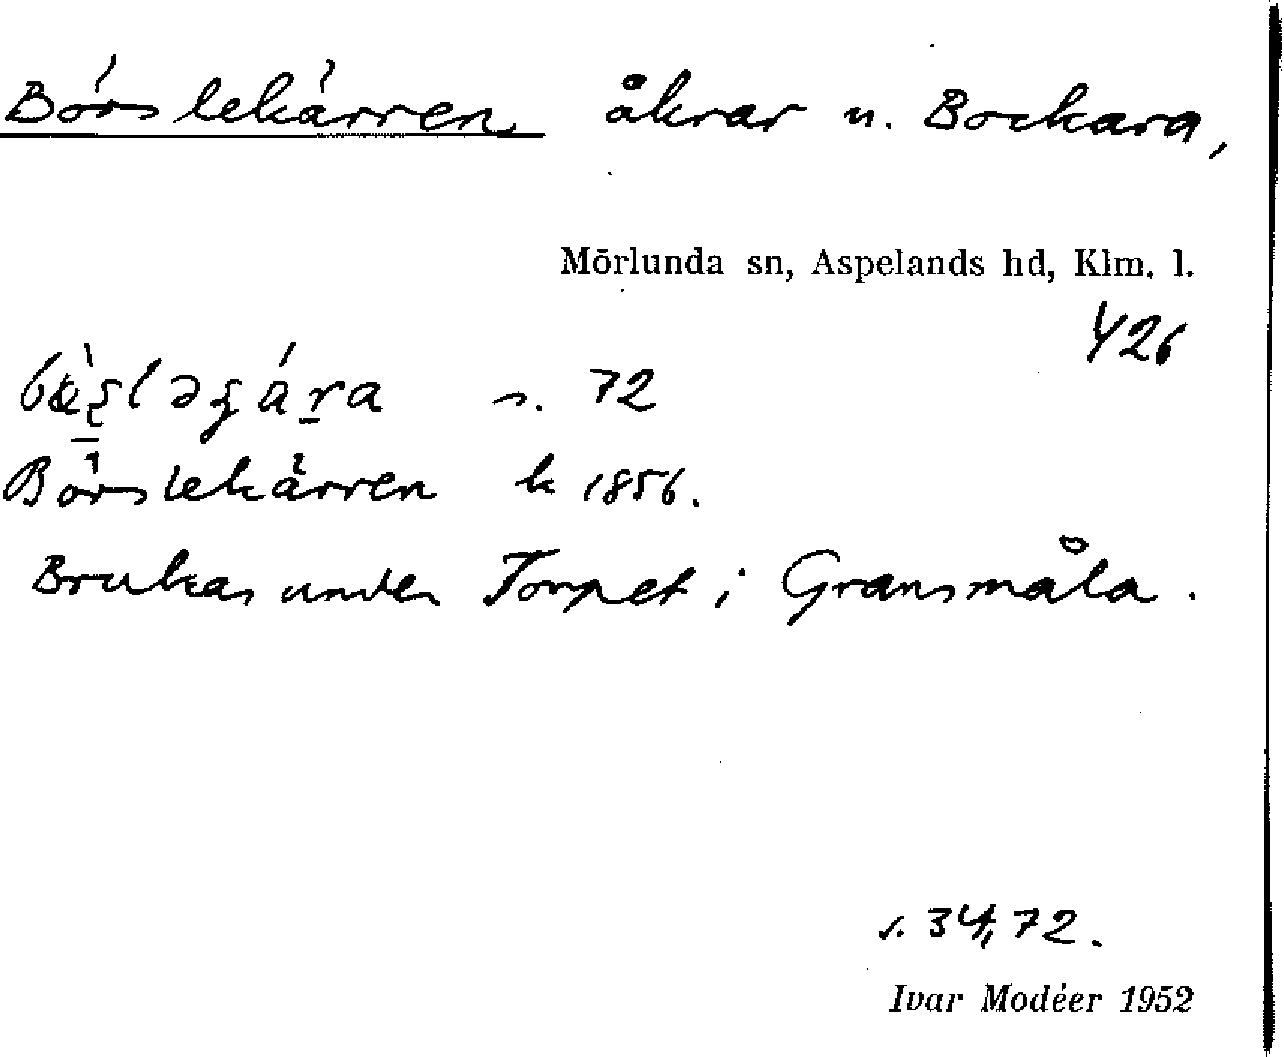 Börslekärren åkrar u. Bockara,
Mörlunda sn, Aspelands hd, Klm. l.
426
s. 72
Börslekärren k 1856.
Brukas under Torpet i Gransmåla.
s. 34, 72.
Ivar Modéer 1952